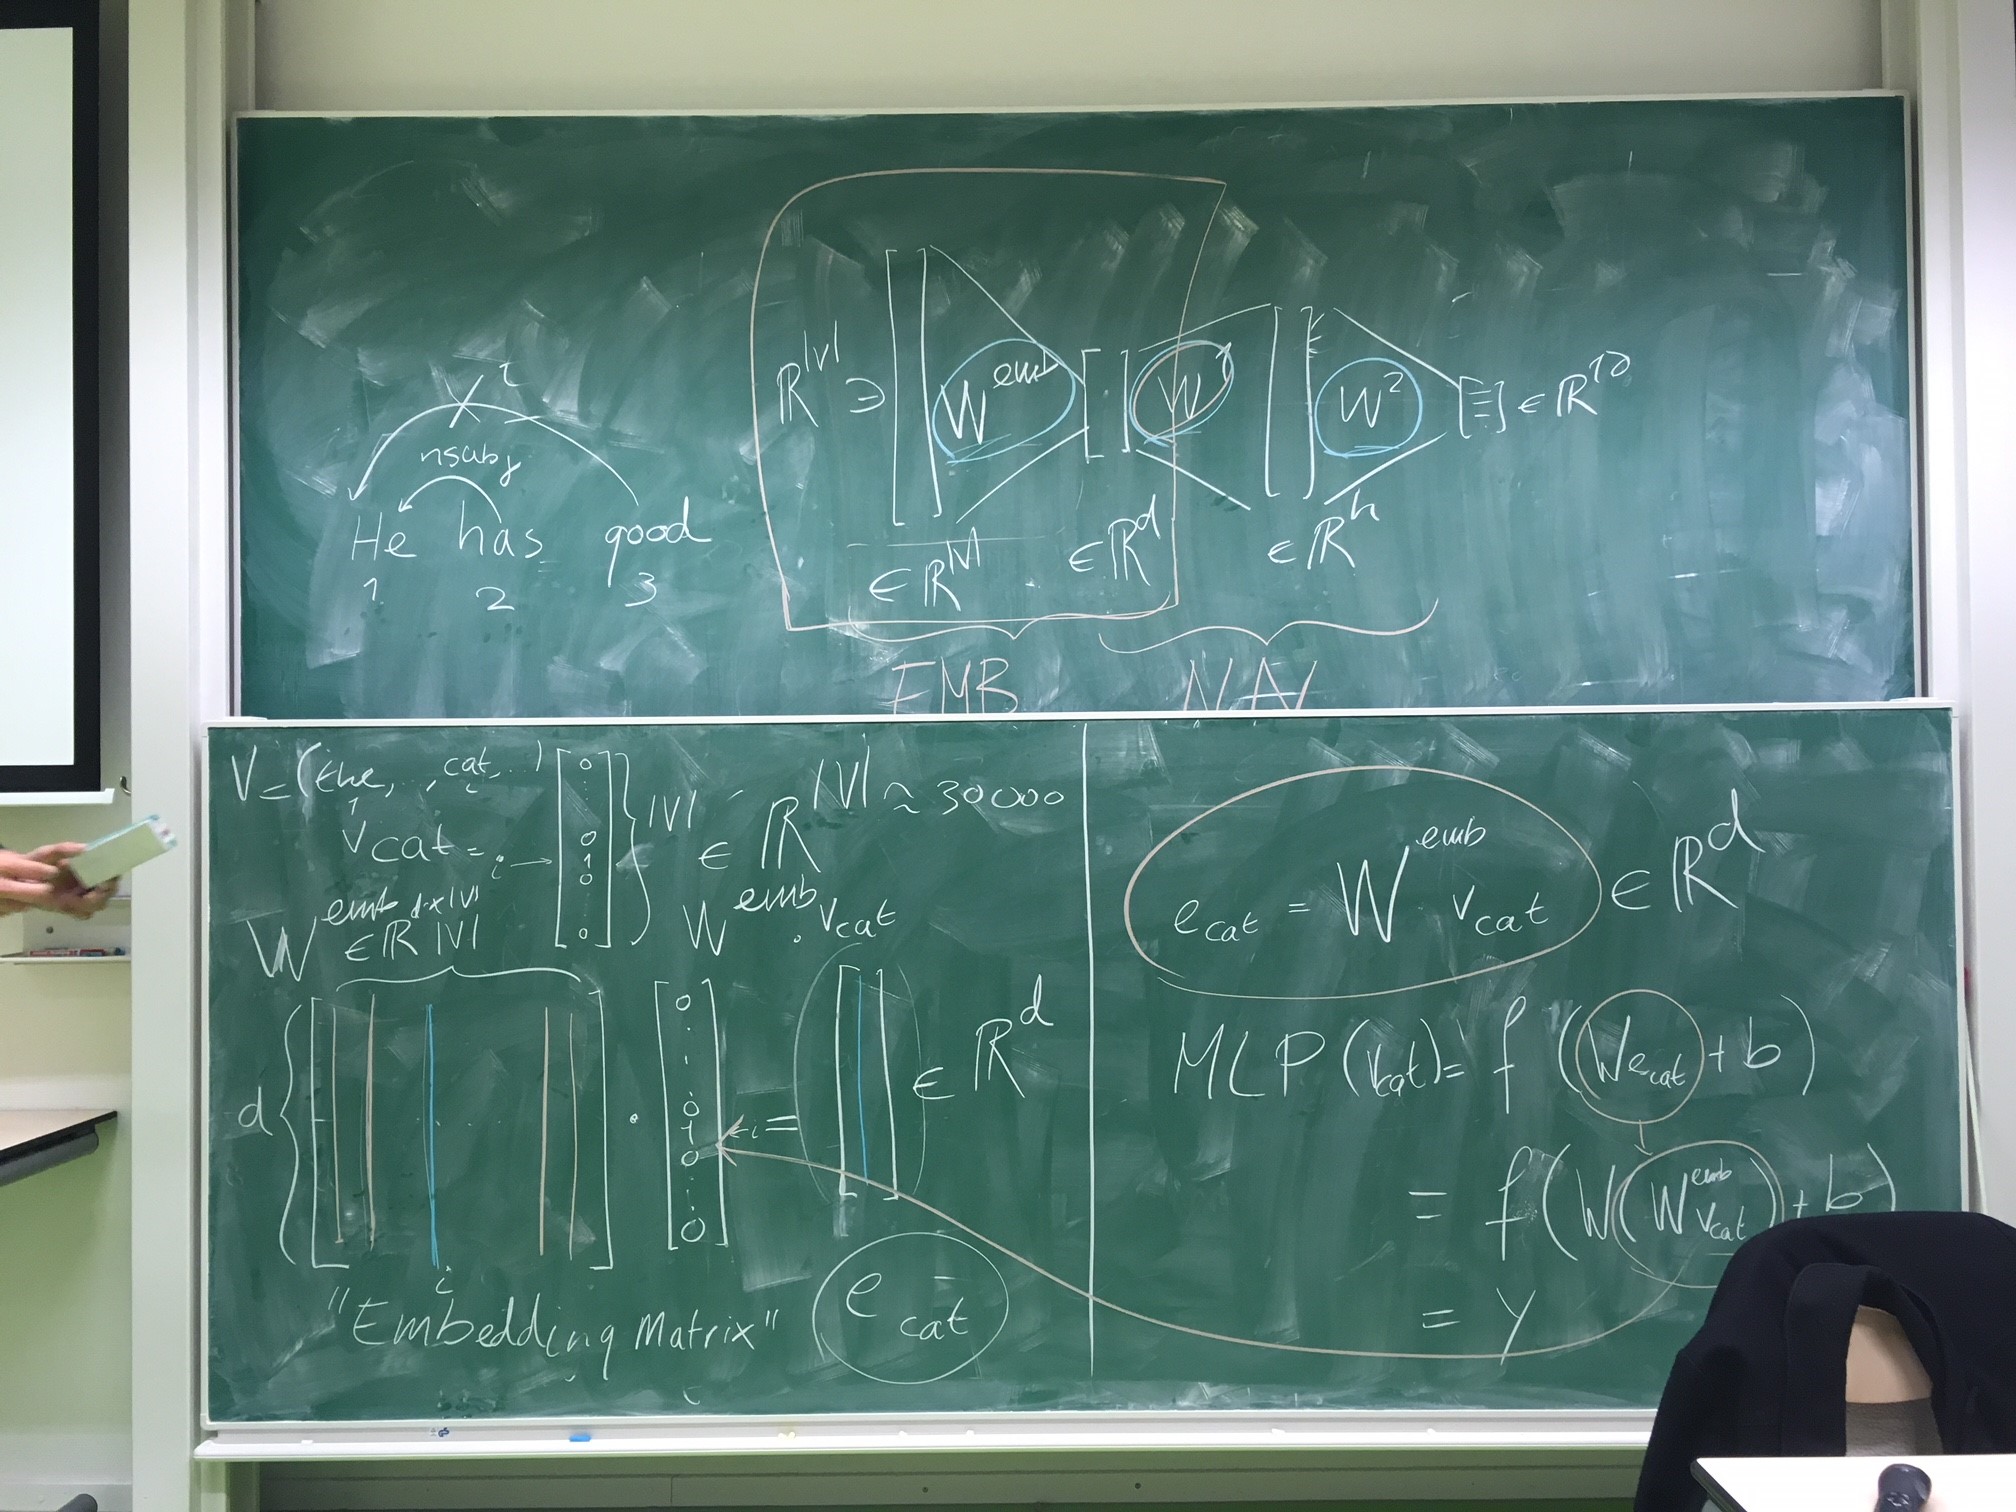 ℝ^|V| ∋ [ ] W^emb [ · ] W^1 [ ] W^2 [ ] ∈ ℝ^12
i
nsubj
He has good
1 2 3
∈ ℝ^|V| ∈ ℝ^d ∈ ℝ^h
EMB
V = (the, .., cat, ..)
1 i
v_cat = i → [0 ... 0 1 0 ... 0] } |V| ∈ ℝ^|V| ~ 30000
W^emb ∈ ℝ^{d×|V|} W^emb · v_cat
|V|
d { [ ] · [0 ... 0 1 0 ... 0] ← i = [ ] ∈ ℝ^d
i
"Embedding Matrix" e_cat
e_cat = W^emb v_cat ∈ ℝ^d
MLP (v_cat) = f (W e_cat + b)
= f (W (W^emb v_cat) + b)
= y